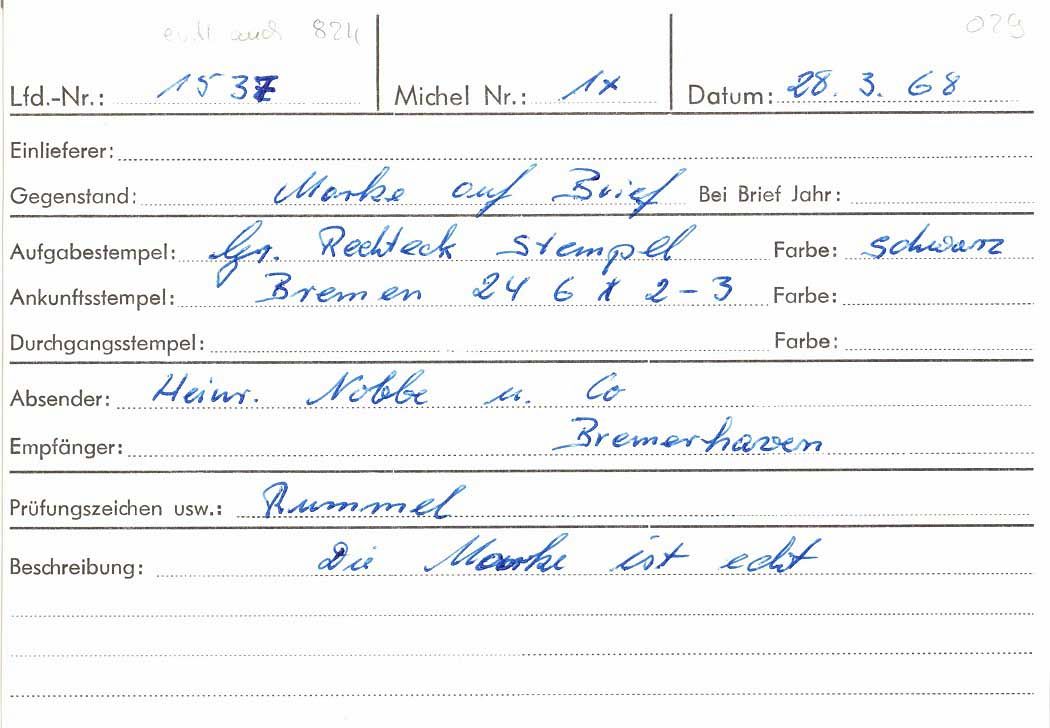 evtl auch 824 029
Lfd.-Nr.: 1537 Michel Nr.: 1x Datum: 28. 3. 68
Einlieferer:
Gegenstand: Marke auf Brief Bei Brief Jahr:
Aufgabestempel: Gr. Rechteck Stempel Farbe: schwarz
Ankunftsstempel: Bremen 24 6 * 2-3 Farbe:
Durchgangsstempel: Farbe:
Absender: Heinr. Nobbe u. Co
Empfänger: Bremerhaven
Prüfungszeichen usw.: Rummel
Beschreibung: Die Marke ist echt